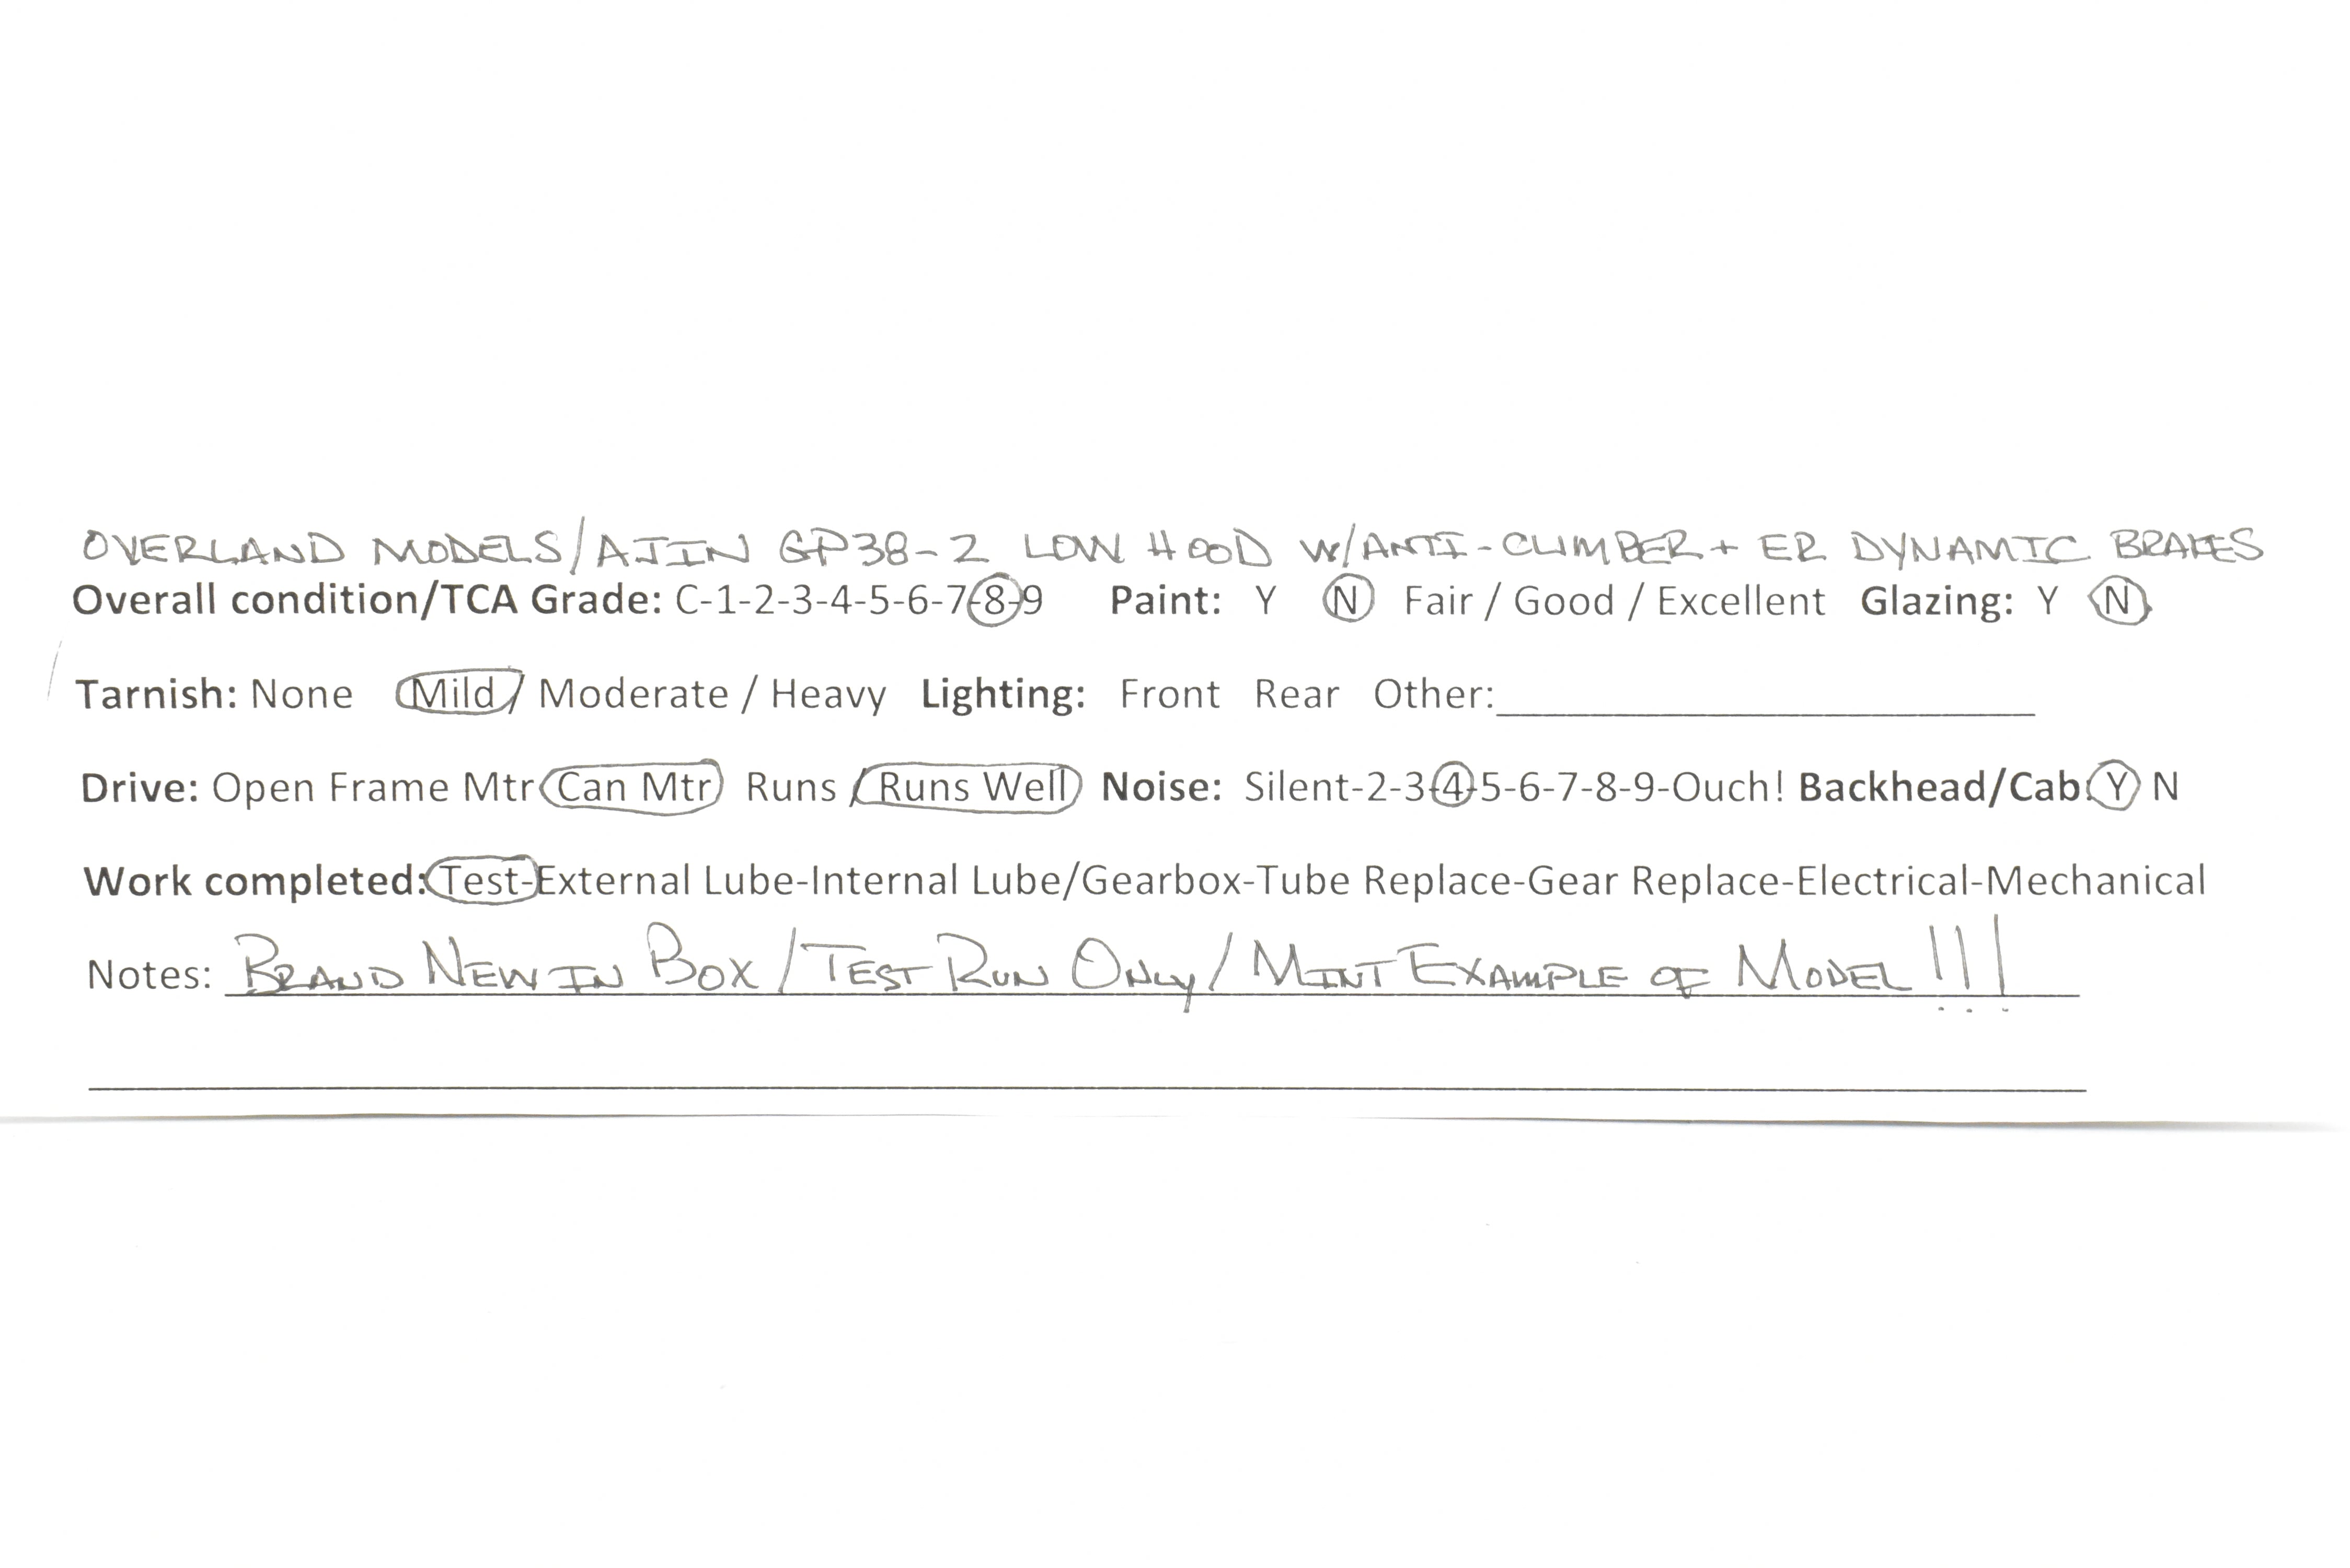 OVERLAND MODELS/AJIN GP38-2 LOW HOOD W/ANTI-CLIMBER + ER DYNAMIC BRAKES
Overall condition/TCA Grade: C-1-2-3-4-5-6-7-8-9 Paint: Y N Fair / Good / Excellent Glazing: Y N
Tarnish: None Mild / Moderate / Heavy Lighting: Front Rear Other:
Drive: Open Frame Mtr Can Mtr Runs / Runs Well Noise: Silent-2-3-4-5-6-7-8-9-Ouch! Backhead/Cab: Y N
Work completed: Test-External Lube-Internal Lube/Gearbox-Tube Replace-Gear Replace-Electrical-Mechanical
Notes: BRAND NEW IN BOX / TEST RUN ONLY / MINT EXAMPLE OF MODEL !!!